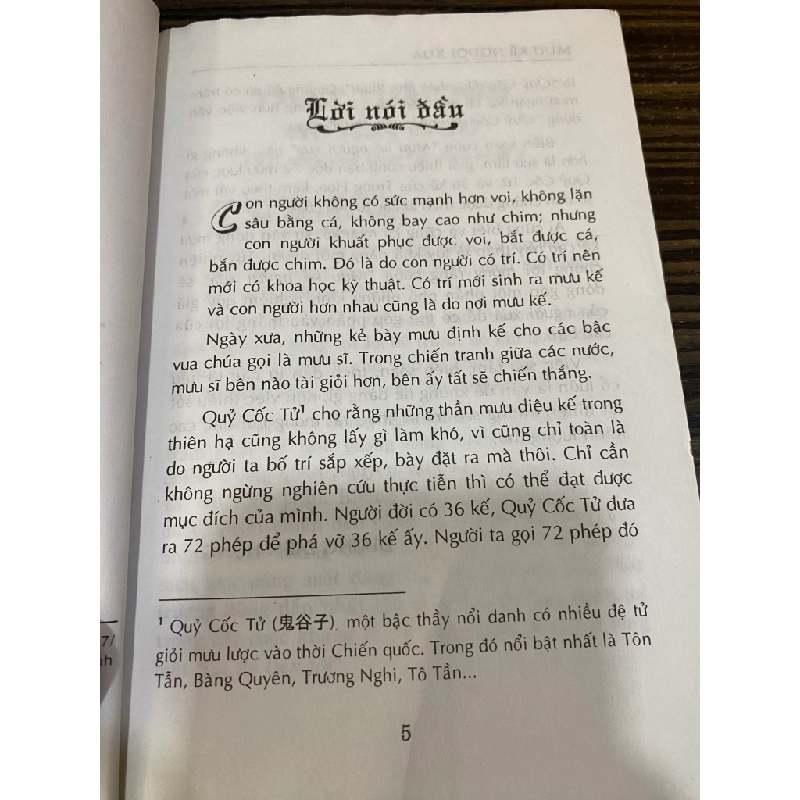 Lời nói đầu
Con người không có sức mạnh hơn voi, không lặn
sâu bằng cá, không bay cao như chim; nhưng
con người khuất phục được voi, bắt được cá,
bắn được chim. Đó là do con người có trí. Có trí nên
mới có khoa học kỹ thuật. Có trí mới sinh ra mưu kế
và con người hơn nhau cũng là do nơi mưu kế.
Ngày xưa, những kẻ bày mưu định kế cho các bậc
vua chúa gọi là mưu sĩ. Trong chiến tranh giữa các nước,
mưu sĩ bên nào tài giỏi hơn, bên ấy tất sẽ chiến thắng.
Quỷ Cốc Tử¹ cho rằng những thần mưu diệu kế trong
thiên hạ cũng không lấy gì làm khó, vì cũng chỉ toàn là
do người ta bố trí sắp xếp, bày đặt ra mà thôi. Chỉ cần
không ngừng nghiên cứu thực tiễn thì có thể đạt được
mục đích của mình. Người đời có 36 kế, Quỷ Cốc Tử đưa
ra 72 phép để phá vỡ 36 kế ấy. Người ta gọi 72 phép đó
¹ Quỷ Cốc Tử (鬼谷子), một bậc thầy nổi danh có nhiều đệ tử
giỏi mưu lược vào thời Chiến quốc. Trong đó nổi bật nhất là Tôn
Tẫn, Bàng Quyên, Trương Nghi, Tô Tần...
5